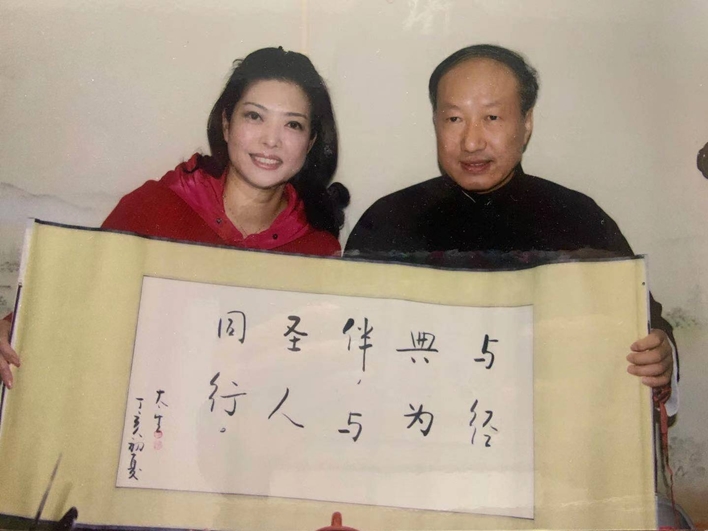 与经
典为
伴，与
圣人
同行。
丁亥初夏